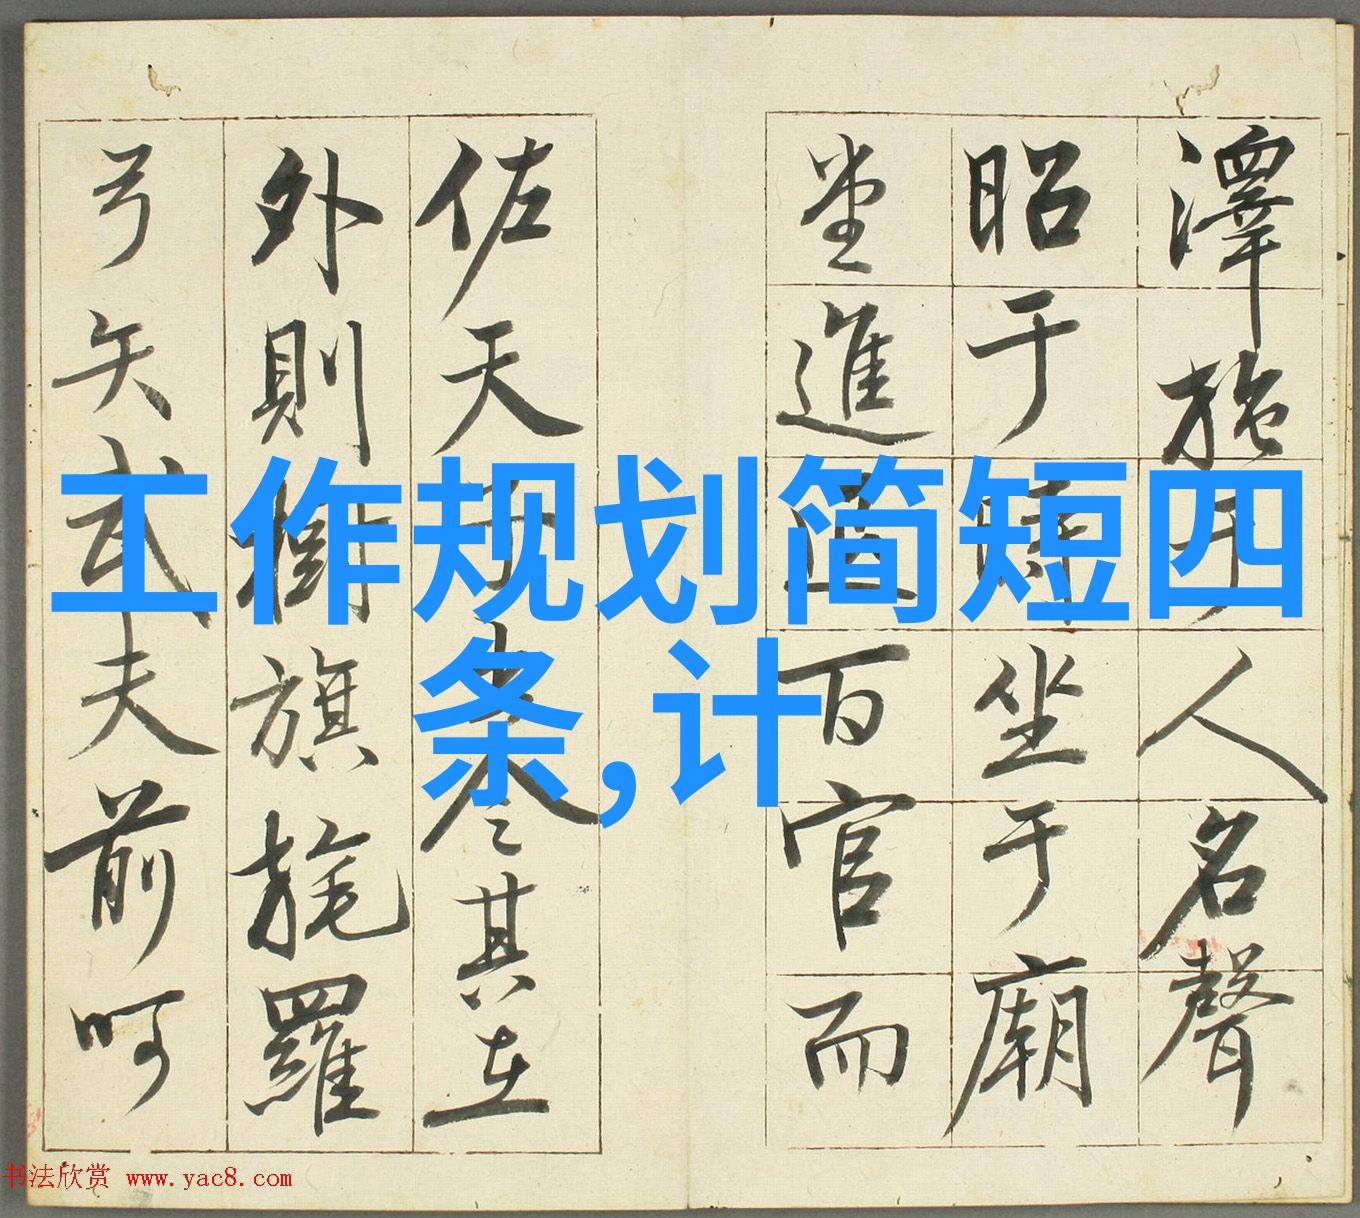 工作规划简短四
条,计
澤施于人名聲
昭于時坐于廟
堂進退百官而
佐天子出令其在
外則樹旗旄羅
弓矢武夫前呵
书法欣赏 www.yac8.com